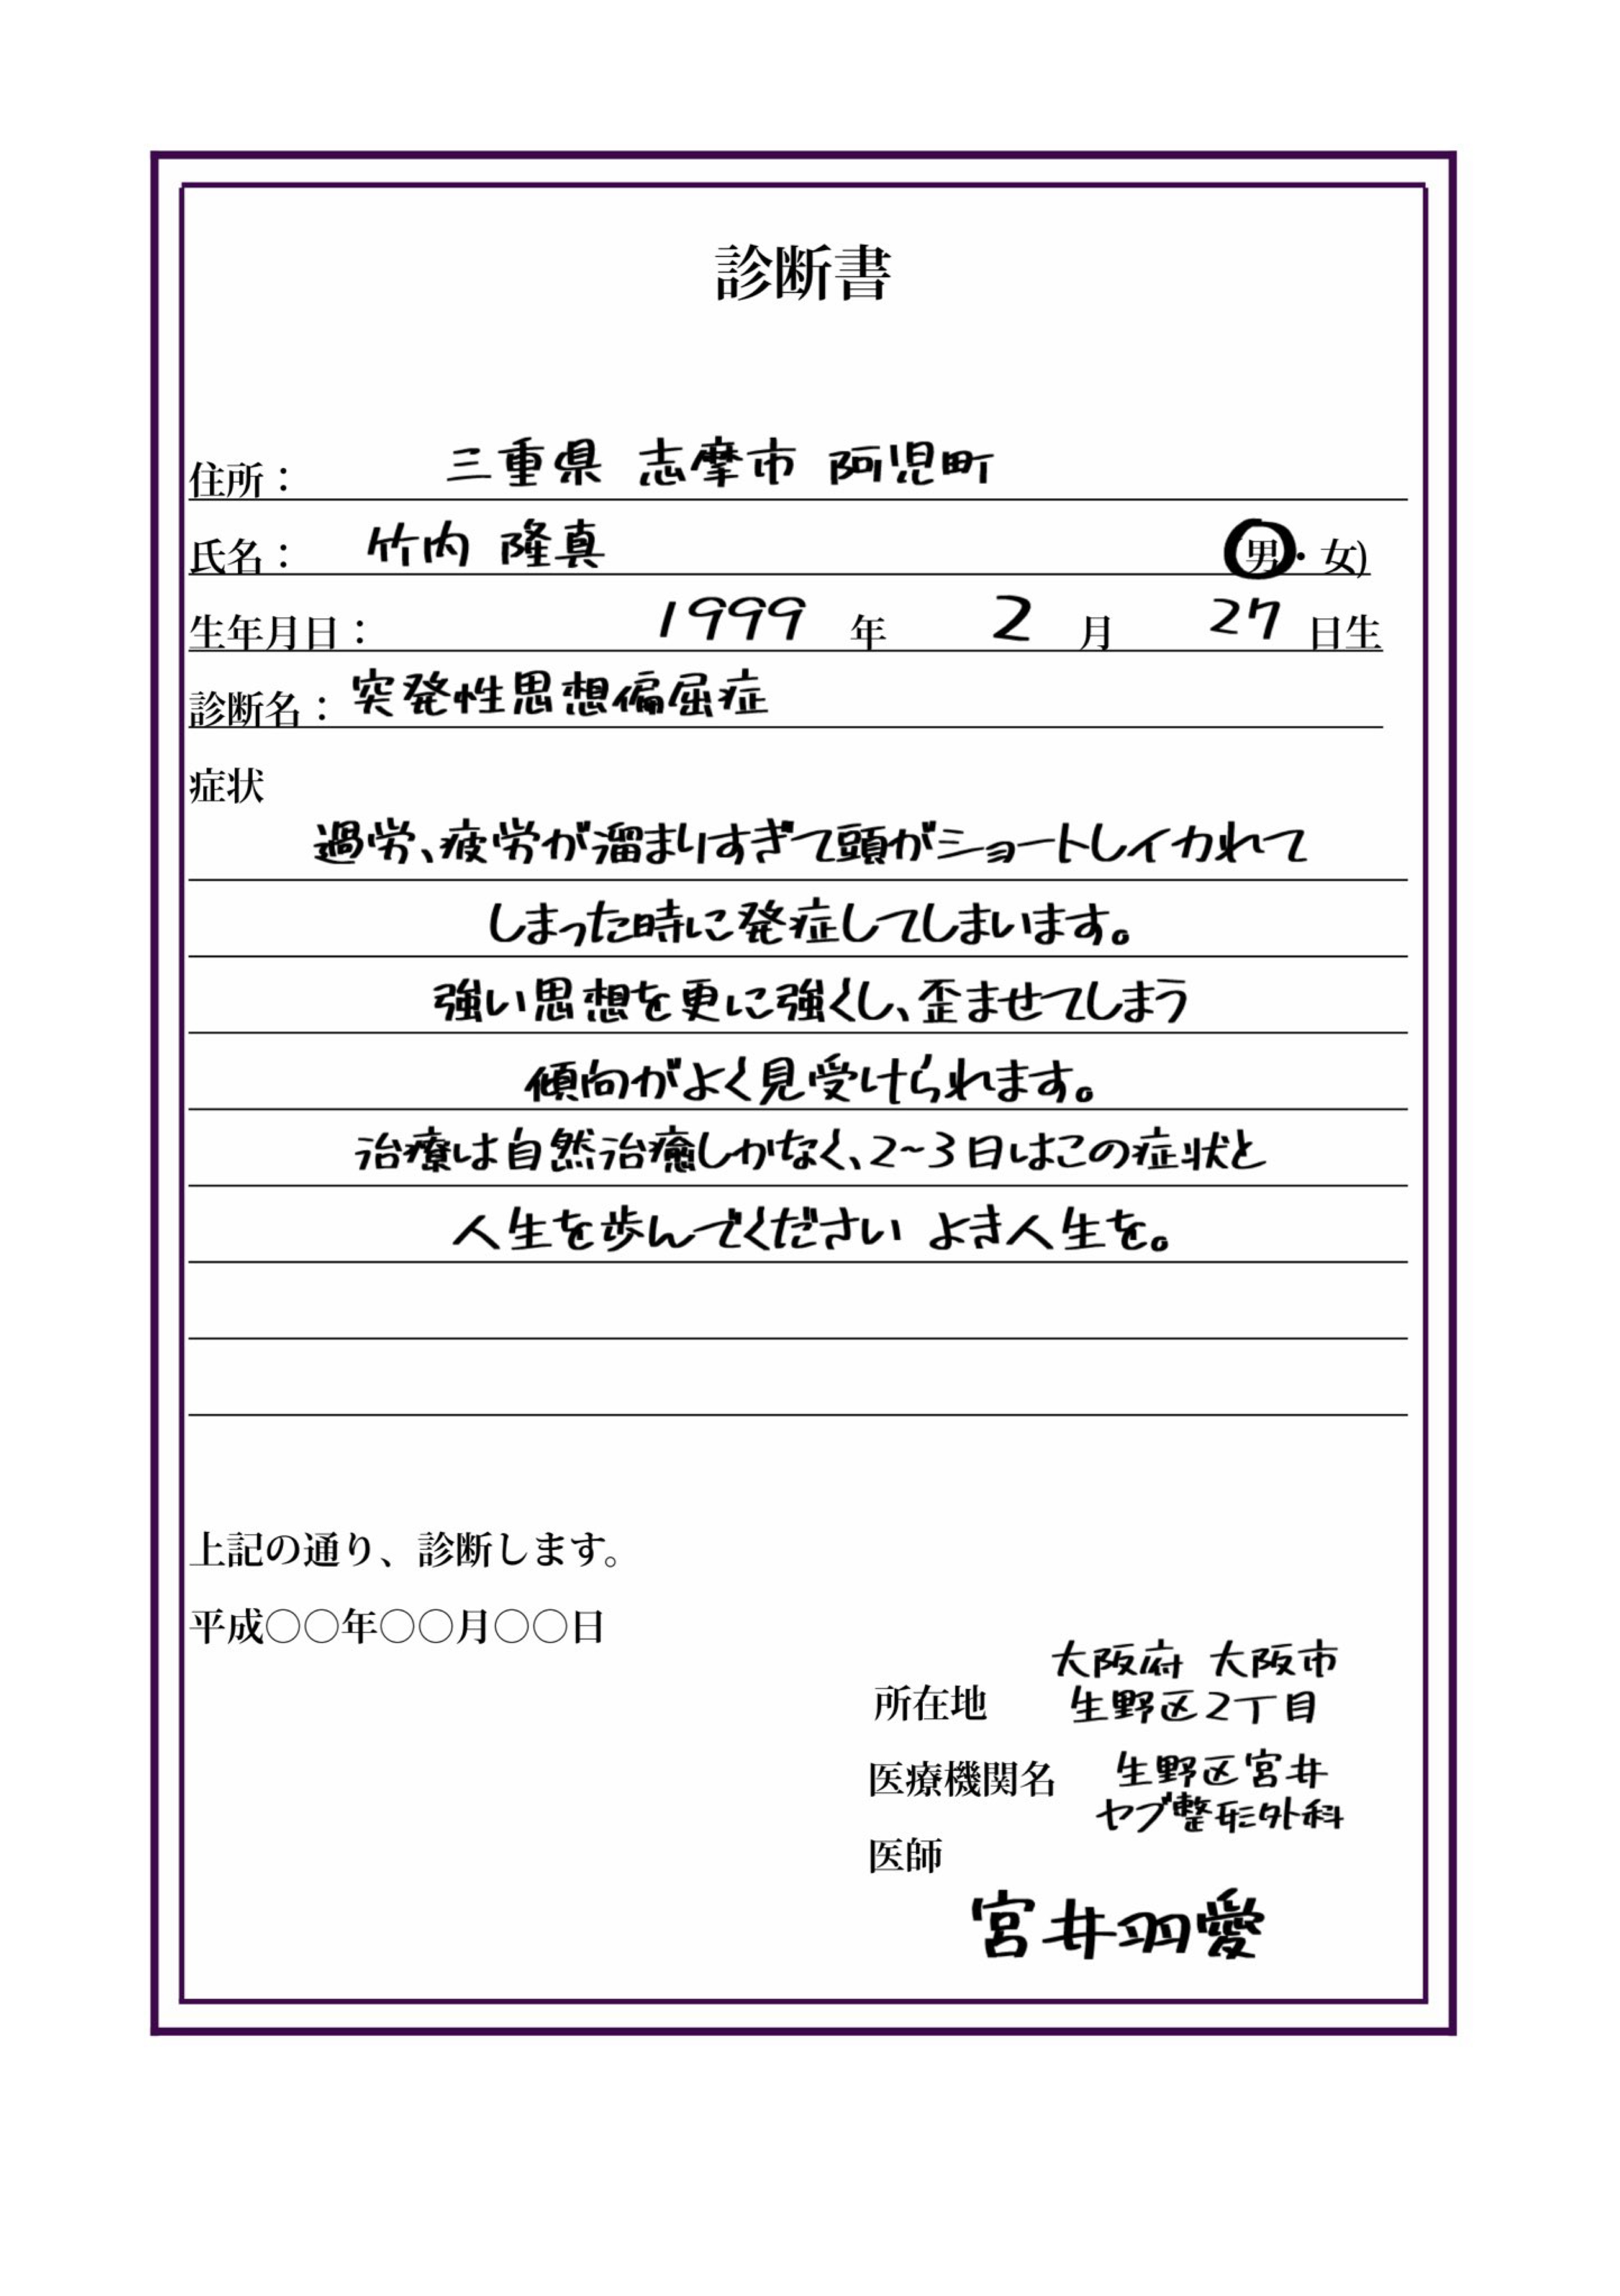 診断書
住所： 三重県 志摩市 阿児町
氏名： 竹内 隆真 男・女)
生年月日： 1999 年 2 月 27 日生
診断名： 突発性思想偏屈症
症状
過労、疲労が溜まりすぎて頭がショートしイカれて
しまった時に発症してしまいます。
強い思想を更に強くし、歪ませてしまう
傾向がよく見受けられます。
治療は自然治癒しかなく、2~3日はこの症状と
人生を歩んでください よき人生を。
上記の通り、診断します。
平成〇〇年〇〇月〇〇日
所在地 大阪府 大阪市
生野区2丁目
医療機関名 生野区宮井
ヤブ整形外科
医師
宮井羽愛